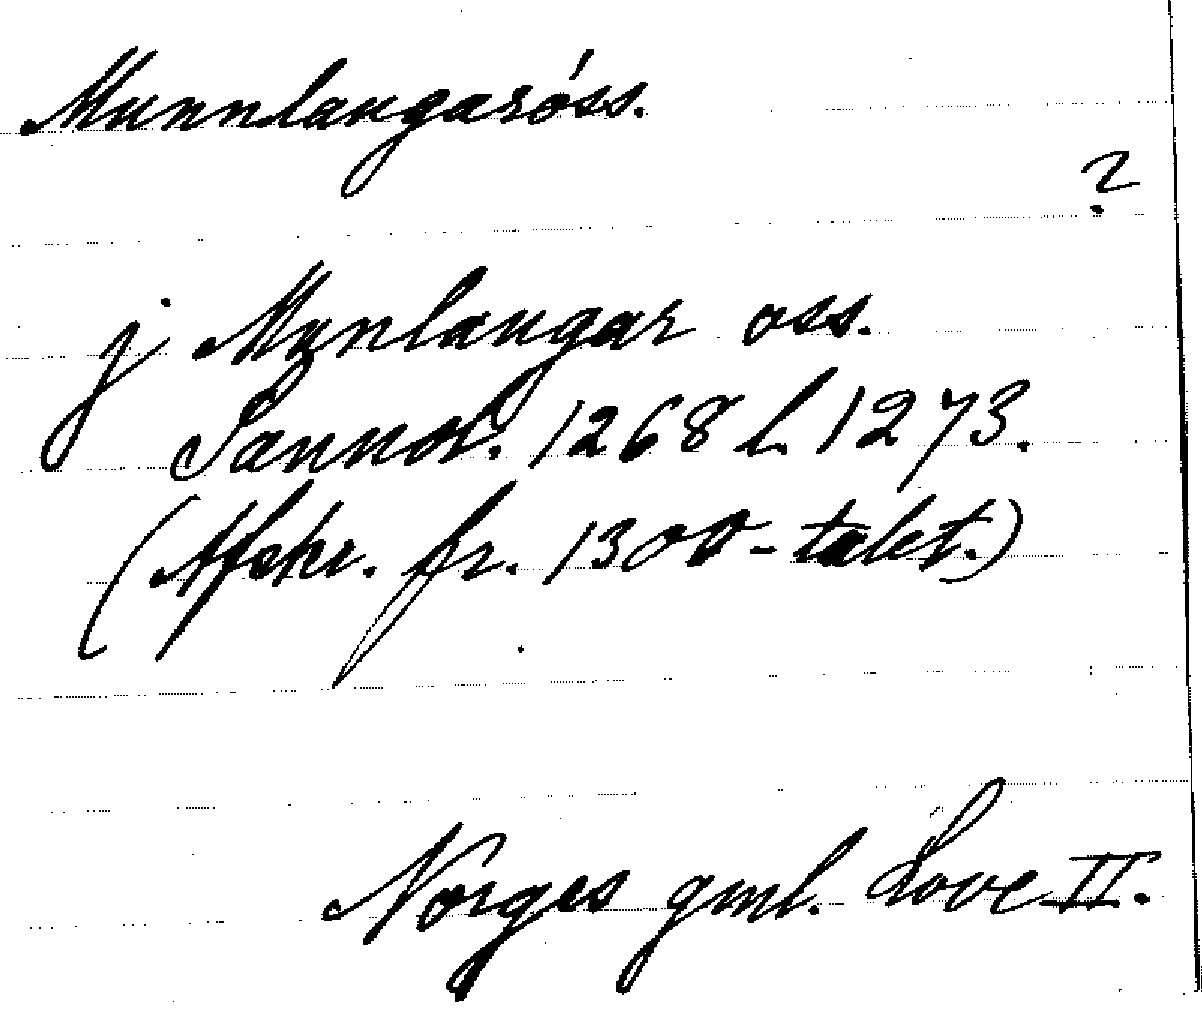 Munnlaugaróss.
?
j Munlaugar oss.
1268 1273.
(Afskr. fr. 1300-talet.)
Norges gml. Love II.